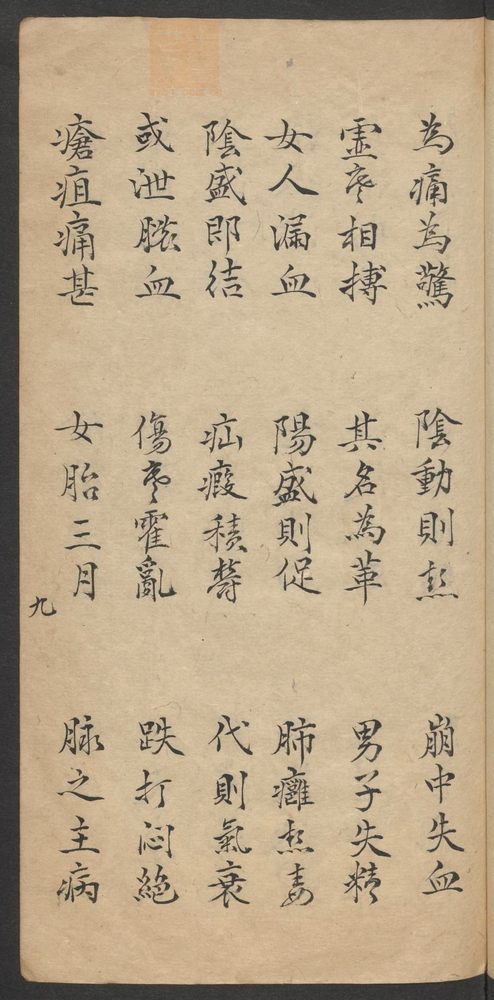 為痛為驚 陰動則熱 崩中失血
虛寒相搏 其名為革 男子失精
女人漏血 陽盛則促 肺癰熱毒
陰盛即結 疝瘕積欝 代則氣衰
或泄膿血 傷寒霍亂 跌打悶絕
瘡疽痛甚 女胎三月 脉之主病
九